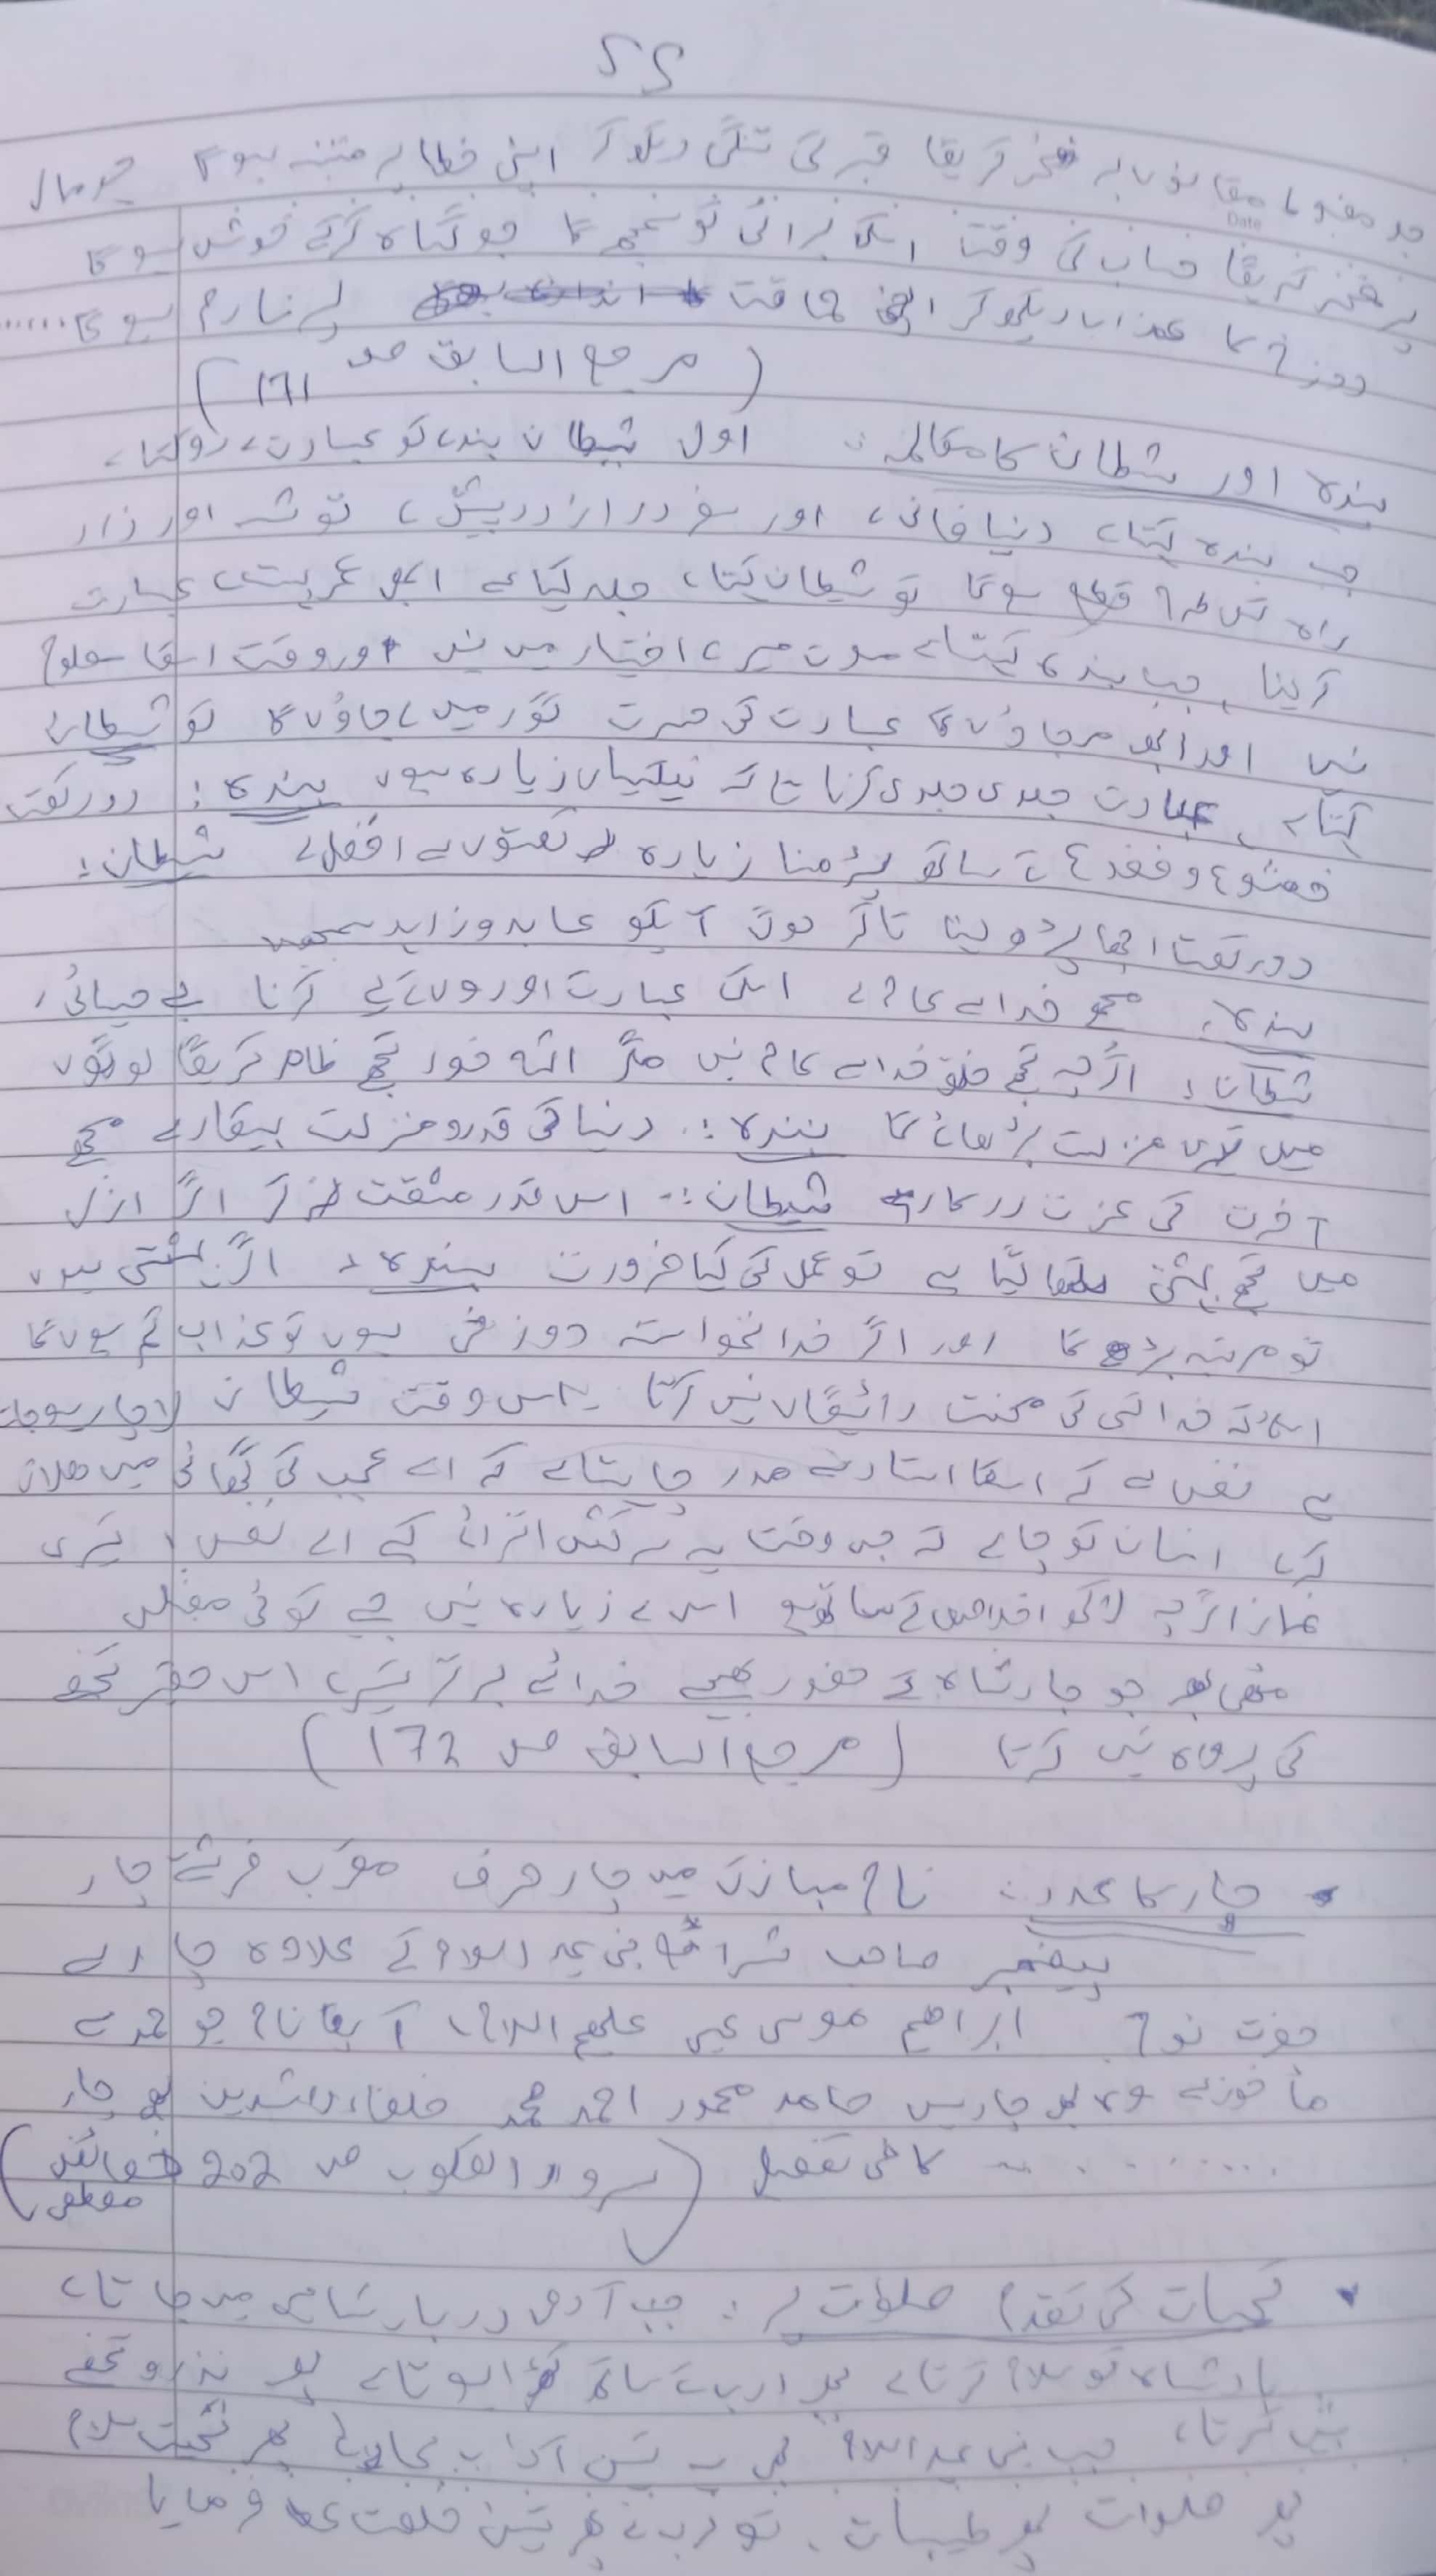 ۲۲
جو مضبوط مقانوں پہ فخر کریگا قبر کی تنگی دیکھ کر اپنی خطا پر متنبہ ہوگا جو مال
پر فخر کریگا حساب کی وقت اسکی برائی کو سمجھے گا جو گناہ کرکے خوش ہو گا
دوزخ کا عذاب دیکھ کر اپنی حماقت پر نادم ہو گا ......
(مرجع السابق صد 171)
بندہ اور شیطان کا مکالمہ :۔ اول شیطان بندے کو عبادت سے روکتا ہے
جب بندہ کہتا ہے دنیا فانی ہے اور سفر دراز درپیش ہے توشہ اور زاد
راہ کس طرح قطع ہو گا تو شیطان کہتا ہے جلد کیا ہے ابھی عمر بہت ہے عبادت
کر لینا جب بندہ کہتا ہے موت میرے اختیار میں نہیں اور وقت اسکا معلوم
نہیں اور ابھی مر جاؤں گا عبادت کی حسرت گور میں لے جاؤں گا تو شیطان
کہتا ہے عبادت جلدی جلدی کرنا تاکہ نیکیاں زیادہ ہوں بندہ : دو رکعت
خشوع و خضوع کے ساتھ پڑھنا زیادہ رکعتوں سے افضل ہے شیطان :
دو رکعت اچھا پڑھ لینا تاکہ لوگ آپکو عابد و زاہد سمجھیں
بندہ : مجھے خدا سے کام ہے اسکی عبادت اوروں کے لیے کرنا بے حیائی ہے
شیطان : اگرچہ تجھے خلق خدا سے کام نہیں مگر اللہ خود تجھے ظاہر کریگا لوگوں
میں تیری منزلت بڑھائے گا بندہ :۔ دنیا کی قدر و منزلت بیکار ہے مجھے
آخرت کی عزت درکار ہے شیطان :۔ اس قدر مشقت نہ کر اگر ازل
میں تجھے بہشتی لکھا گیا ہے تو عمل کی کیا ضرورت بندہ : اگر بہشتی ہوں
تو مرتبہ بڑھے گا اور اگر خدا نخواستہ دوزخی ہوں تو عذاب کم ہوں گا
اسلئے کہ خدا کسی کی محنت رائیگاں نہیں کرتا ۔ اس وقت شیطان لاچار ہو جاتا
ہے نفس سے کہ اسکا استاد ہے مدد چاہتا ہے کہ اسے عجب کی گھاٹی میں ہلاک
کرے انسان کو چاہے کہ جس وقت یہ سرکش اترائے کہے اے نفس ! تیری
نماز اگرچہ لاکھ اخلاص کے ساتھ ہو اس سے زیادہ نہیں جیسے کوئی مفلس
جو بادشاہ کے حضور بھیجے خدائے برتر اس حقیر تحفے
کی پرواہ نہیں کرتا (مرجع السابق صد 172)
• چار کا عدد :۔ نام مبارک میں چار حرف مقرب فرشتے چار
پیغمبر صاحب شرائع نبی علیہ السلام کے علاوہ چار ہے
حضرت نوح ابراھیم موسی عیسی علیھم السلام آپکا نام جو حمد سے
ماخوذ ہے وہ بھی چار ہیں حامد محمود احمد محمد خلفاء راشدین بھی چار
.......... کافی تفصیل (سرور القلوب صد 202 خصائص
مصطفی)
• تحیات کی تقدم صلوات پر : جب آدمی دربار شاہی میں جاتا ہے
بادشاہ کو سلام کرتا ہے پھر ادب کے ساتھ کھڑا ہوتا ہے پھر نذر و تحفے
پیش کرتا ہے جب نبی علیہ السلام بھی یہ تین آداب بجا لائے پھر تحیت سلام
پھر صلوات پھر طیبات ۔ تو رب نے پھر تین خلعت عطا فرمایا